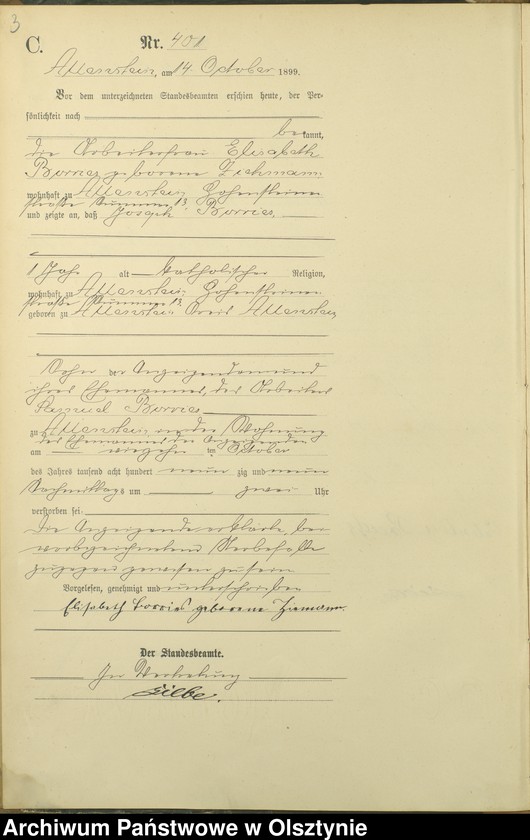 3
C.
Nr. 401
Allenstein, am 14 October 1899.
Vor dem unterzeichneten Standesbeamten erschien heute, der Per-
sönlichkeit nach
bekannt,
die Arbeiterfrau Elisabeth
Borries geborene
wohnhaft zu Allenstein Hohensteiner
straße Nummer 13
und zeigte an, daß Joseph Borries,
1 Jahr alt katholischer Religion,
wohnhaft zu Allenstein Hohensteiner
straße Nummer 13
geboren zu Allenstein Kreis Allenstein
Sohn der Anzeigenden und
ihres Ehemannes, des Arbeiters
Samuel Borries
zu Allenstein in der Wohnung
des Ehemannes der Anzeigenden
am vierzehn ten October
des Jahres tausend acht hundert neun zig und neun
Nachmittags um zwei Uhr
verstorben sei.
Die Anzeigende erklärte, bei
vorbezeichnetem Sterbefalle
zugegen gewesen zu sein
Vorgelesen, genehmigt und unterschrieben
Elisabeth Borries geborene
Der Standesbeamte.
In Vertretung
Archiwum Państwowe w Olsztynie